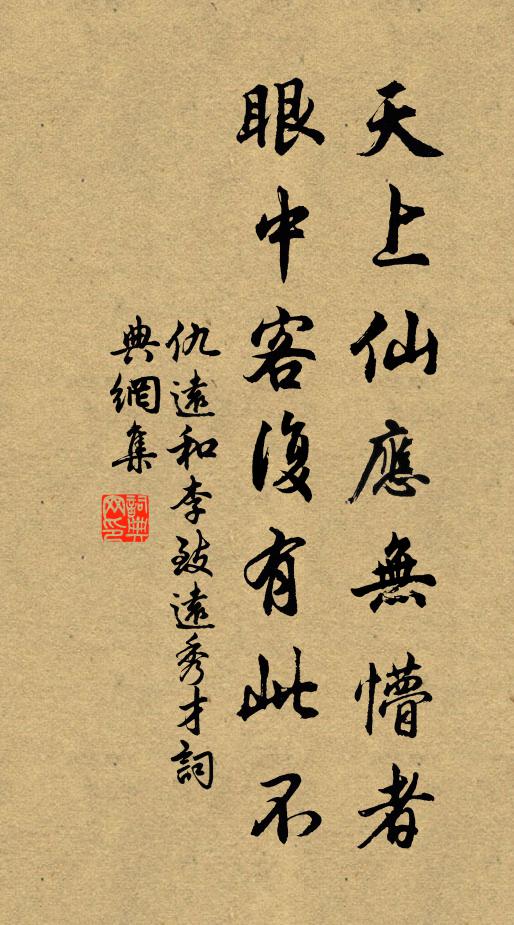 天上仙應無懵者
眼中客復有此不
仇遠和李致遠秀才詞
典網集
詞典
网印